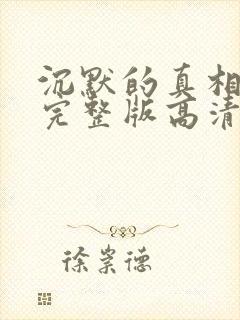 沉默的真相
完整版高清
徐崇德